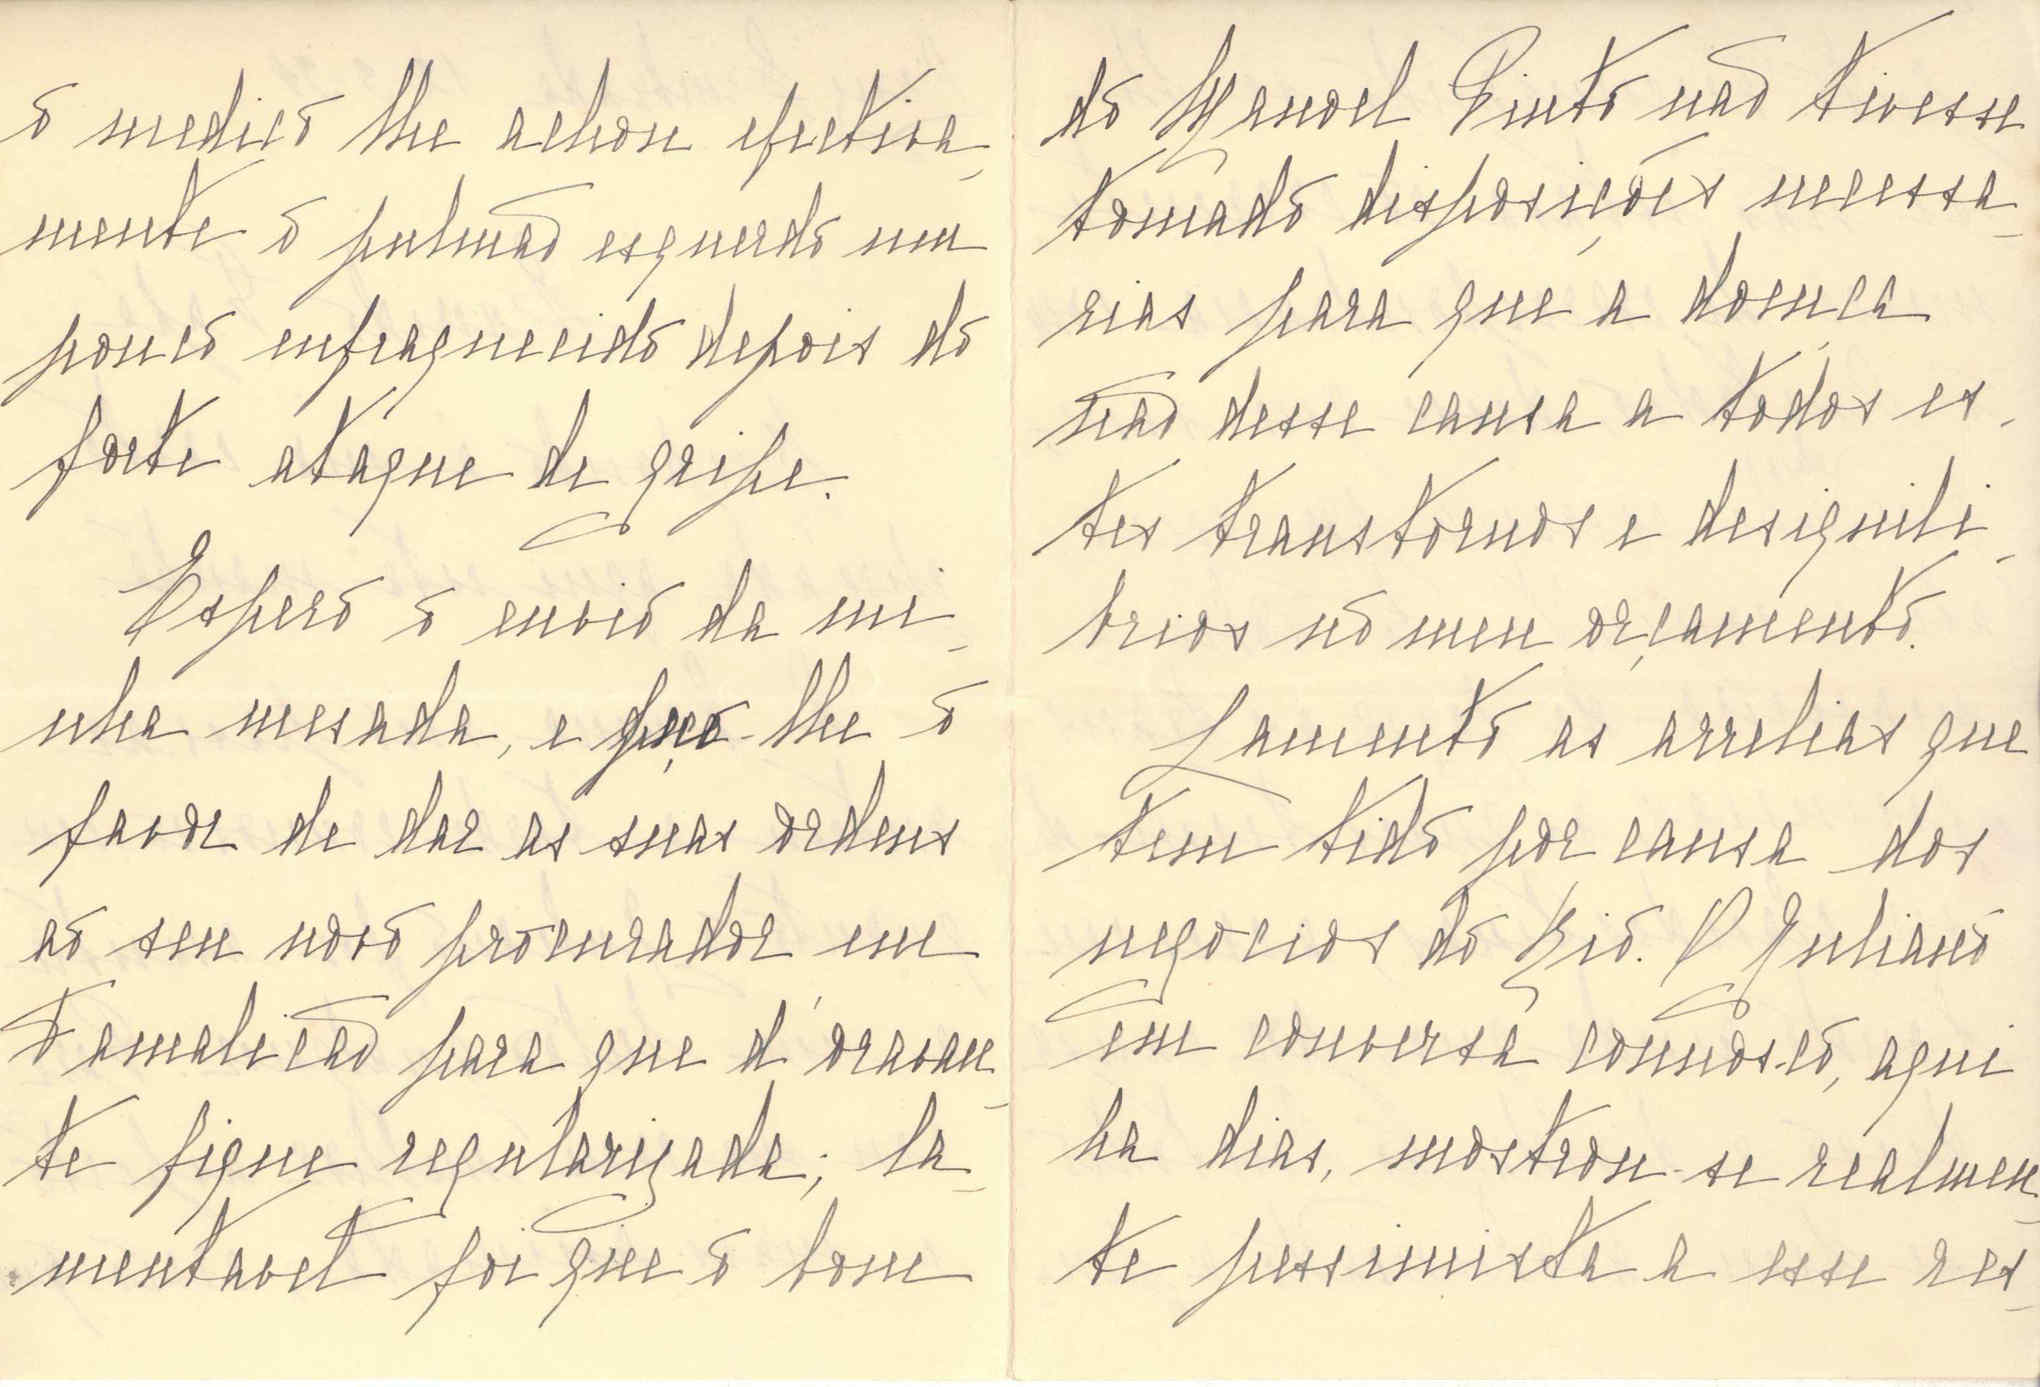 o medico lhe achou efectiva-
mente o pulmão esquerdo um
pouco enfraquecido depois do
forte ataque de gripe.
Espero o envio da mi-
nha mesada, e peço-lhe o
favor de dar as suas ordens
ao seu novo procurador em
Famalicão para que d'oravan-
te fique regularizada; la-
mentavel foi que o bom
do Manoel Pinto não tivesse
tomado disposições necessa-
rias para que a doença
não desse causa a todos es-
tes transtornos e desiquili-
brios no meu orçamento.
Lamento as arrelias que
tem tido por causa dos
negocios do Rio. O Juliano
em conversa connosco, aqui
ha dias, mostrou-se realmen-
te pessimista a esse res-